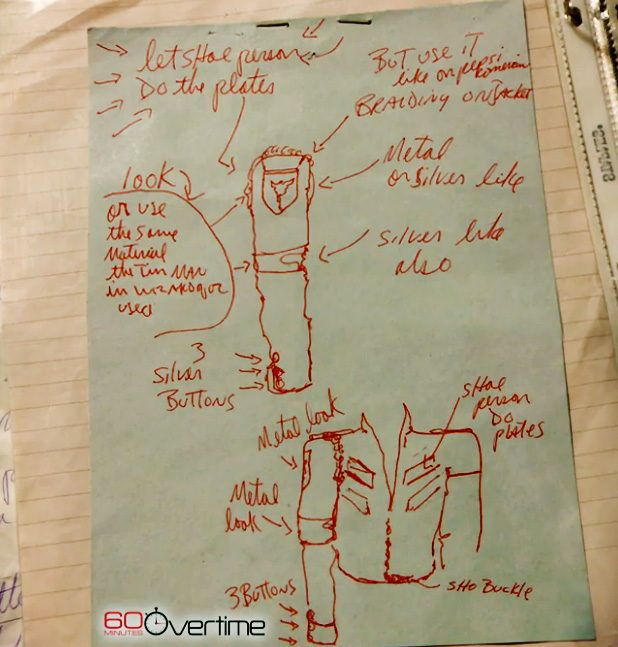 let SHoe person
Do the plates
BUT use IT
like on pepsi
BRAIDING ON JACKET
look
or use
the same
Material
the Tin MAN
in WIZARD of OZ
uses
Metal
or silver like
silver like
also
3
Silver
BUTTONS
Metal look
Metal
look
SHoe
person
DO
plates
3 Buttons
SHO Buckle
60
MINUTES
Overtime